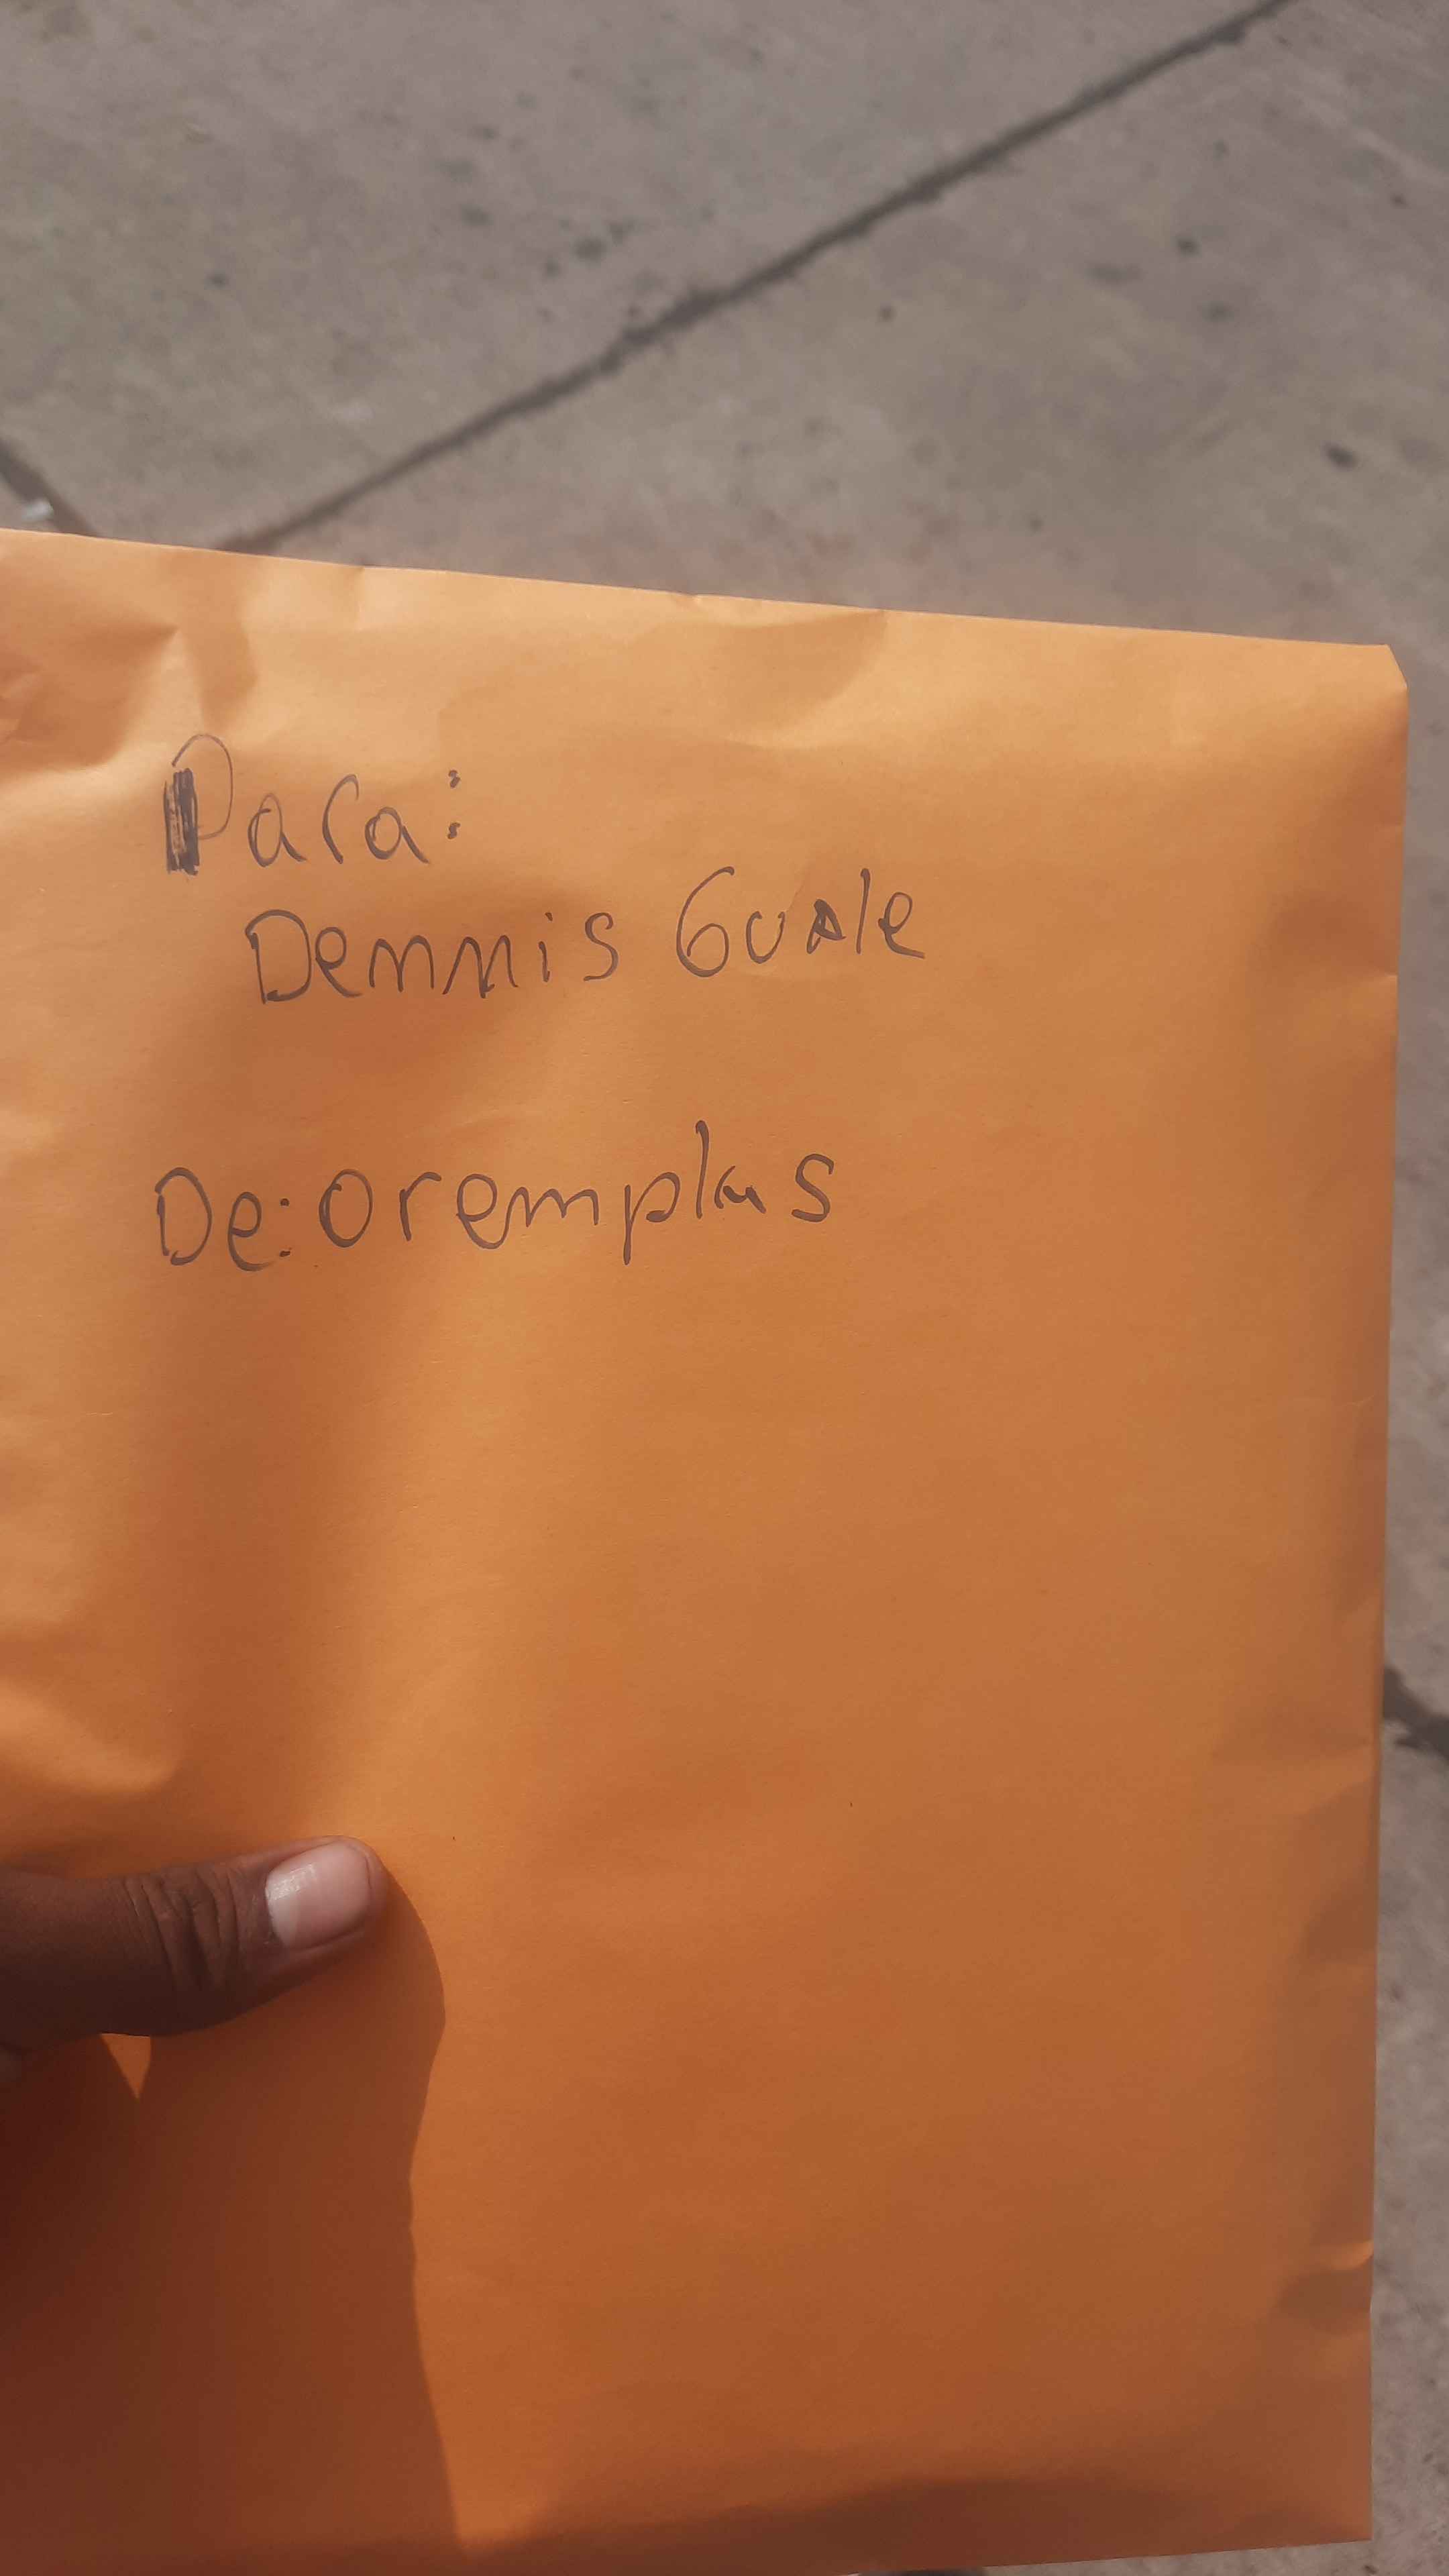 Para:
Dennis Guale
De: Oremplas